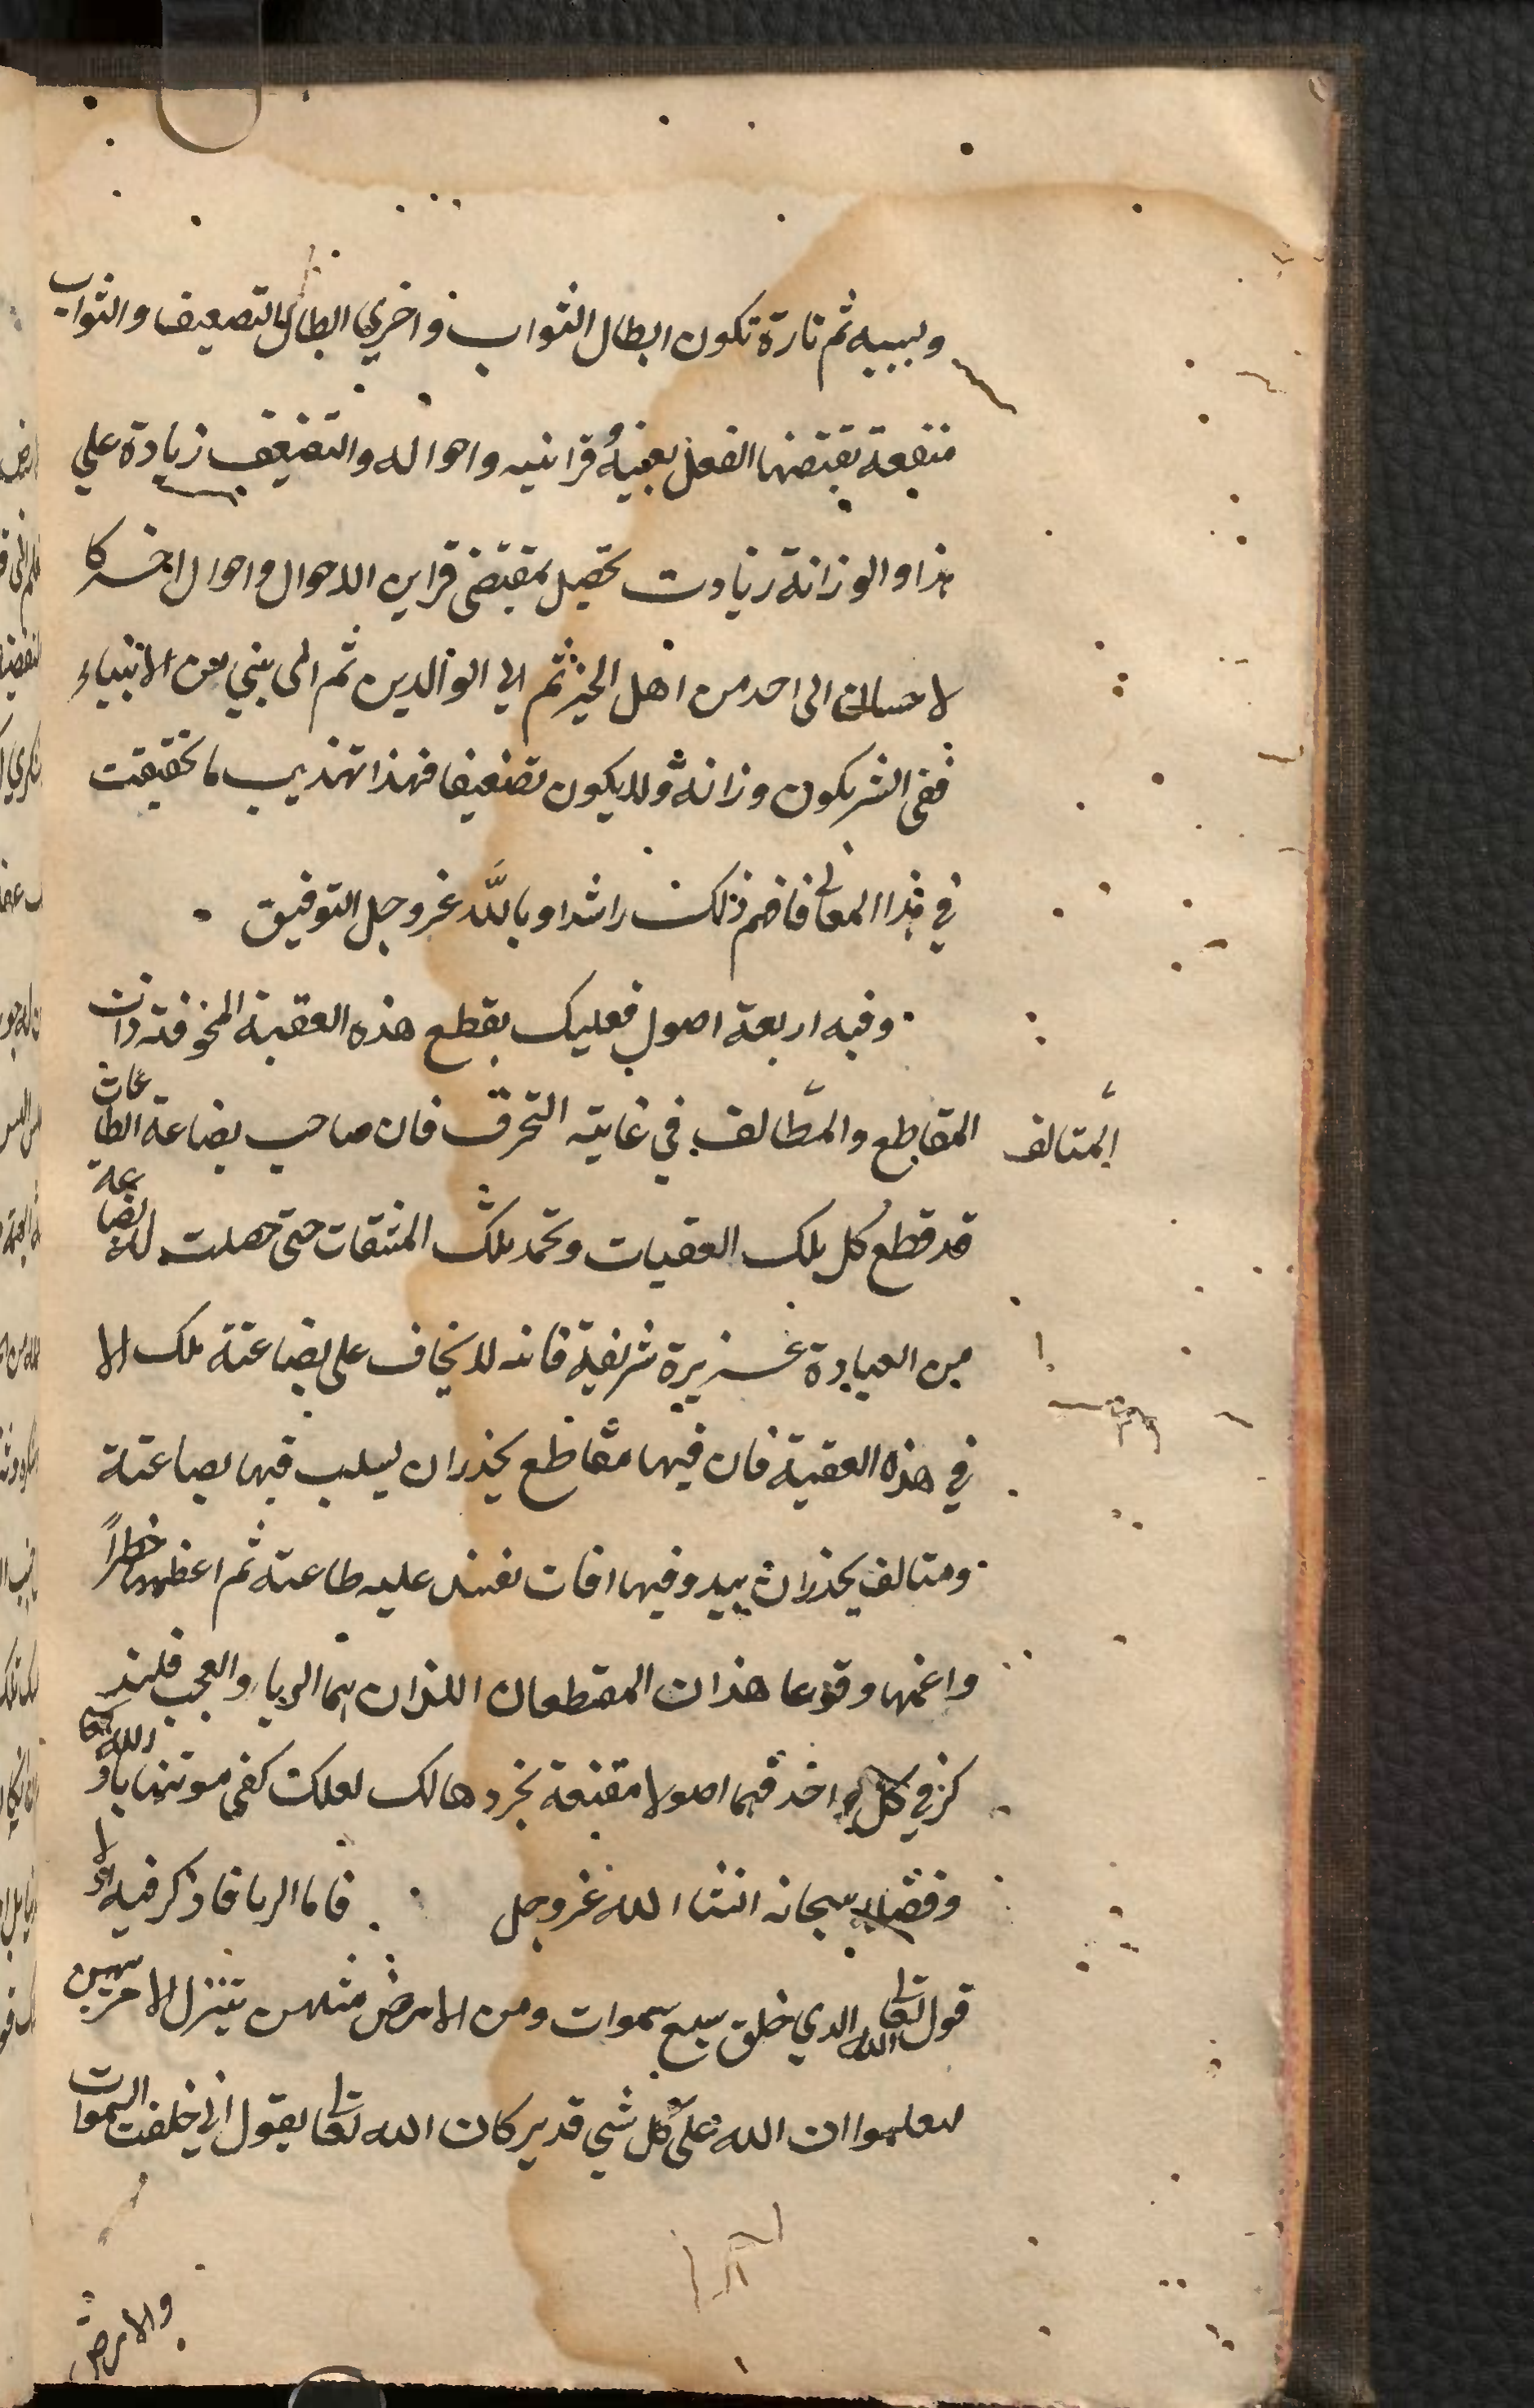 وليبيه ثم تارة تكون ابطال الثواب واخري ابطال التضعيف والثواب
منفعة يقتضيها الفعل بعينه وقرائنه واحواله والتضعيف زيادة علي
هذا والوزانة زيادت تحصل بمقتضى قراين الاحوال واحوال اخر كا
لاحسان الى احد من اهل الخير ثم الي الوالدين ثم الى بني من الانبياء
ففى الشر يكون وزانة ولا يكون تضعيفا فهذا تهذيب ما تحققت
في هذا المعانى فافهم ذلك راشدا وبالله عزوجل التوفيق
وفيه اربعة اصول فعليك بقطع هذه العقبة المخوفة ذات
المقاطع والمتالف في غاية التحرق فان صاحب بضاعة الطاعات
المتالف
قد قطع كل تلك العقبات وتحمد تلك المشقات حتى حصلت له بضاعة
من العبادة عزيرة شريفة فانه لا يخاف على بضاعته تلك الا
في هذه العقبة فان فيها مقاطع يحذر ان ليسلب فيها بضاعته
ومتالف يحذر ان يبدو فيها افات تفسد عليه طاعته ثم اعظمها خطراً
واعمها وقوعا هذان المقطعان اللذان هما الريا والعجب فلنذ
كر في كل واحد فيهما اصولا مقنعة نجردها لك لعلك كفى موتنها باذن الله تعا
وفضله سبحانه انشا الله عزوجل فاما الريا فاذكر فيه اولا
قول الله تعالى الذي خلق سبع سموات ومن الارض مثلهن يتنزل الامر بينهن
لتعلموا ان الله على كل شي قدير كان الله تعالى يقول اني خلقت السموات
والارض